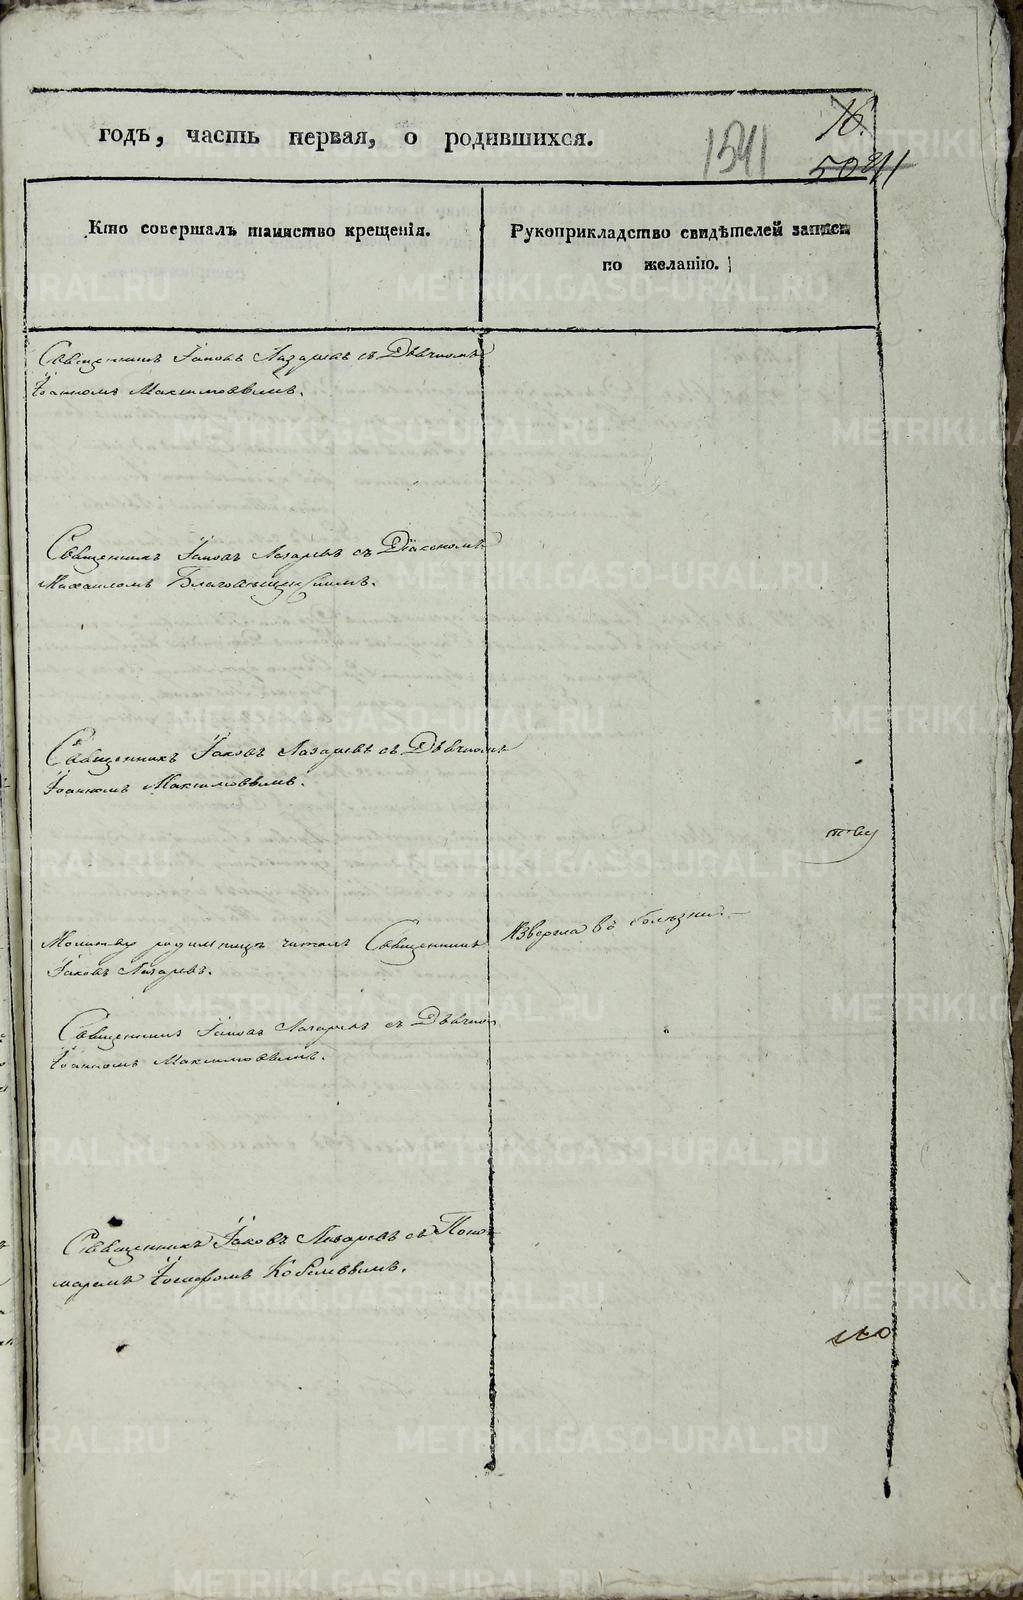 16.
годъ, часть первая, о родившихся.
1541
Кто совершалъ таинство крещенія.
Рукоприкладство свидѣтелей записи
по желанію.
Священникъ Іаковъ Лазаревъ съ Дьячкомъ
Іоанномъ Максимовымъ.
Священникъ Іаковъ Лазаревъ съ Діакономъ
Михаиломъ Благовѣщенскимъ.
Священникъ Іаковъ Лазаревъ съ Дьячкомъ
Іоанномъ Максимовымъ.
Молитву родильницѣ читалъ Священникъ
Іаковъ Лазаревъ.
въ болѣзни.
Священникъ Іаковъ Лазаревъ съ Дьячко
Іоанномъ Максимовымъ.
Священникъ Іаковъ Лазаревъ съ Поно-
маремъ Іосифомъ
METRIKI.GASO-URAL.RU